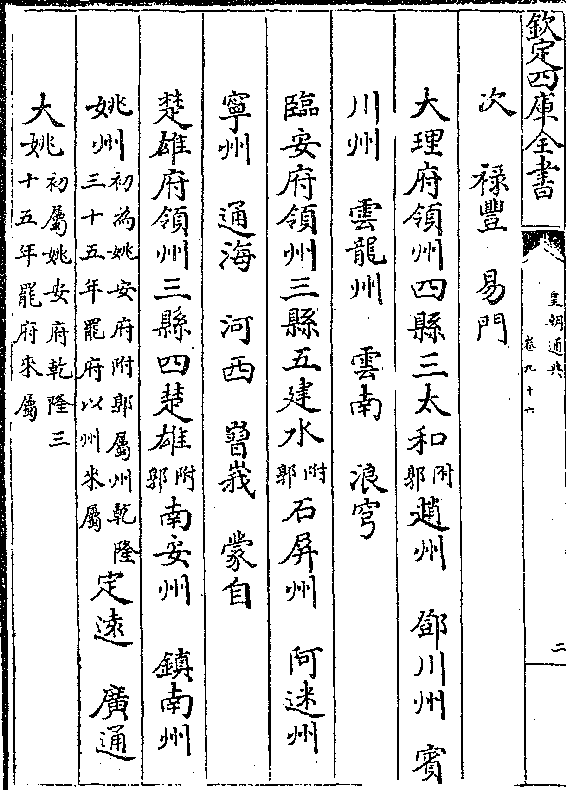 欽定四庫全書
皇朝通典
卷九十六
二
次　祿豐　易門
大理府領州四縣三太和附郭趙州　鄧川州　賓
川州　雲龍州　雲南　浪穹
臨安府領州三縣五建水附郭石屏州　阿迷州
寧州　通海　河西　嶍峩　蒙自
楚雄府領州三縣四楚雄附郭南安州　鎮南州
姚州初為姚安府附郭屬州乾隆三十五年罷府以州来屬定遠　廣通
大姚初屬姚安府乾隆三十五年罷府来屬